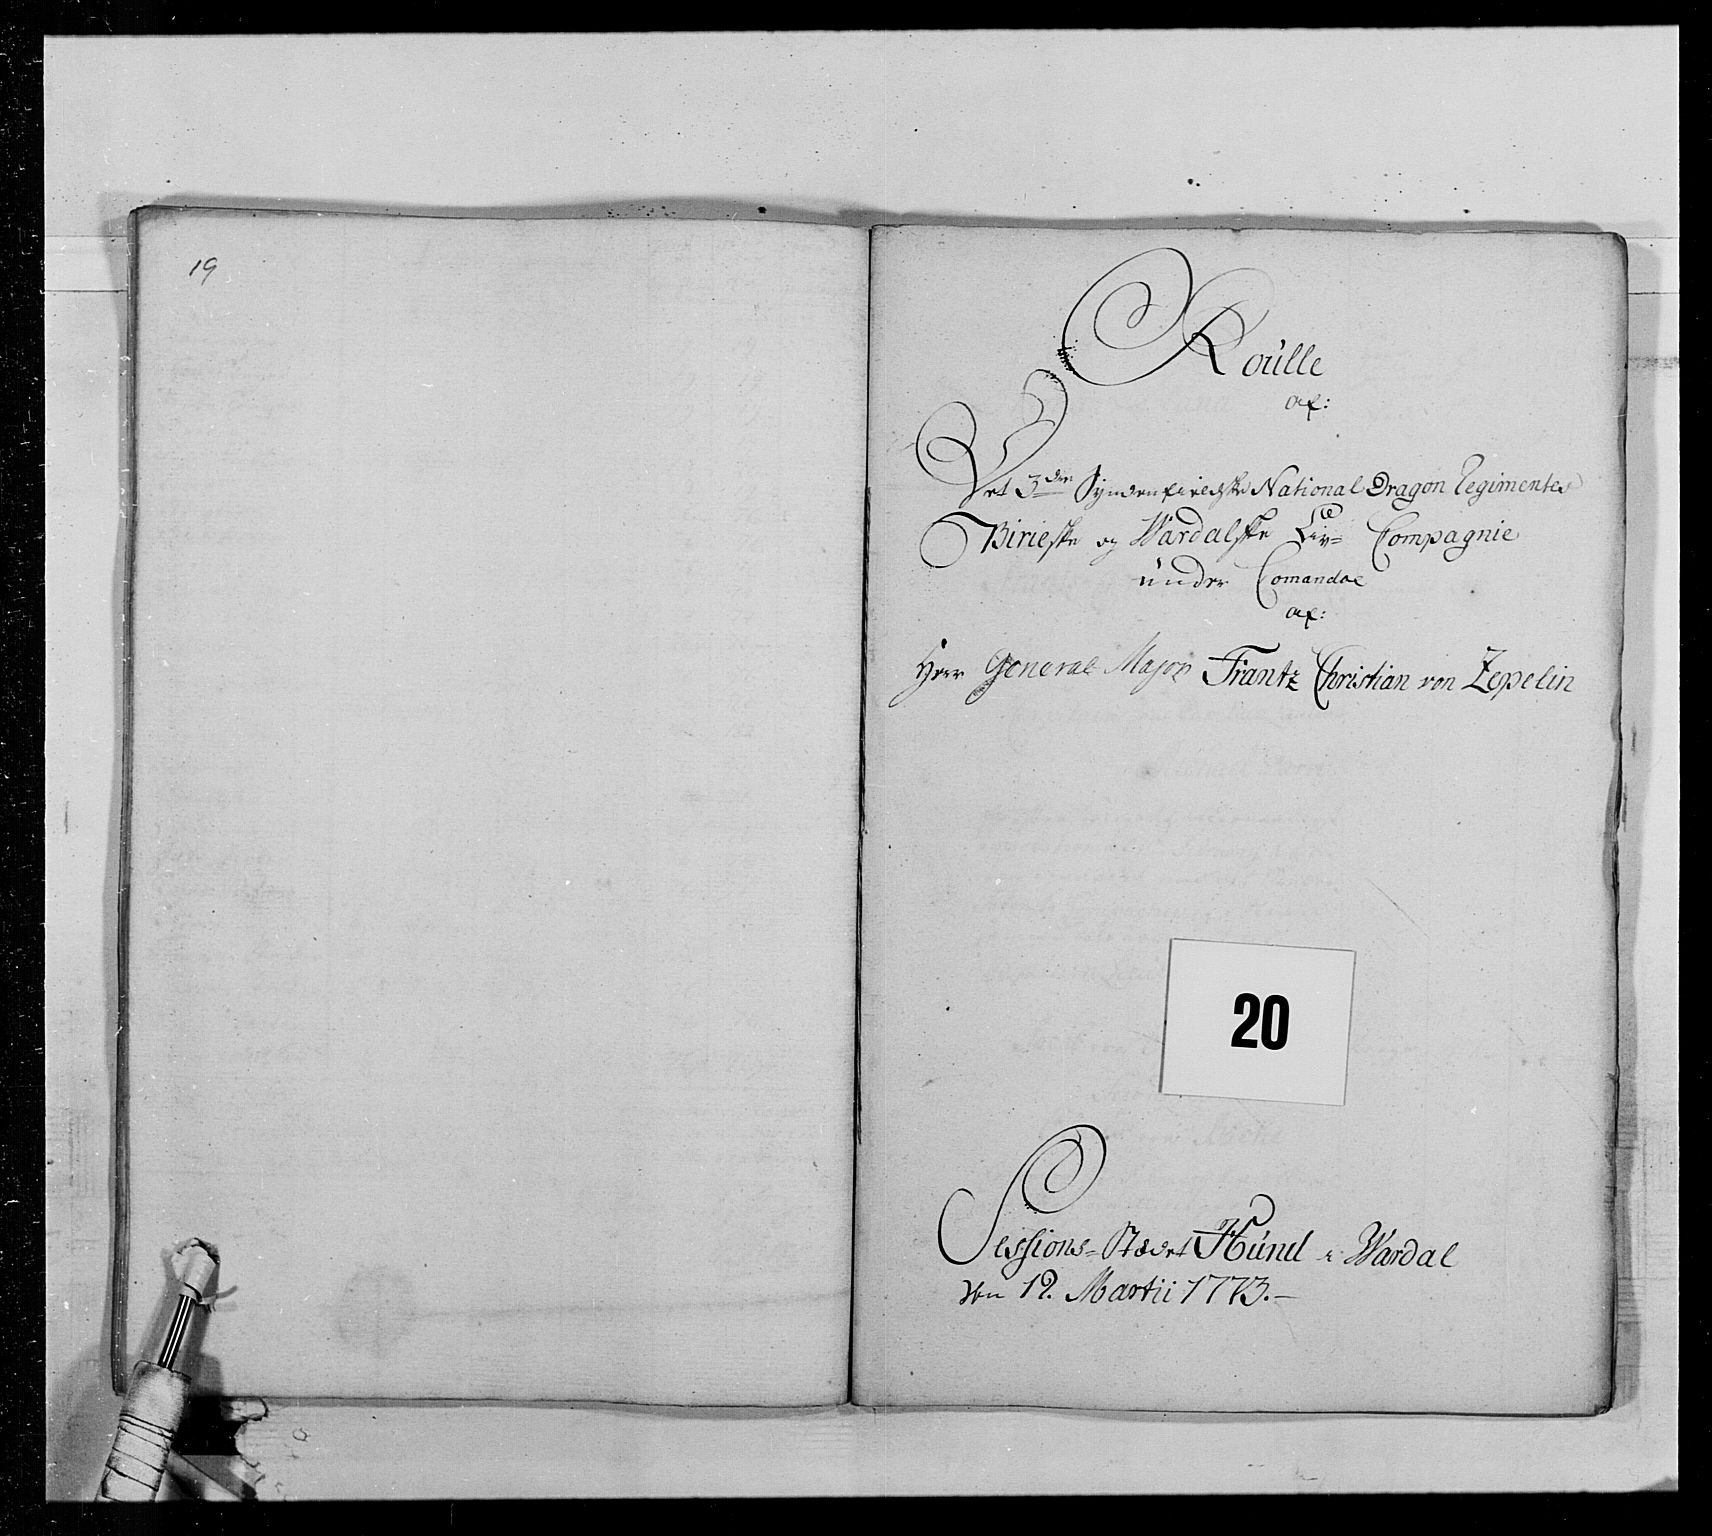 19
Roúlle
af:
Det 3die Syndenfieldske National Dragon Regimentes
Birieske og Wardalske Liv= Compagnie
únder Comandoe
af:
Herr General Major Frantz Christian von Zepelin
20
Sessions=Stædet Húnd i Wardal
den 12. Martii 1773.—